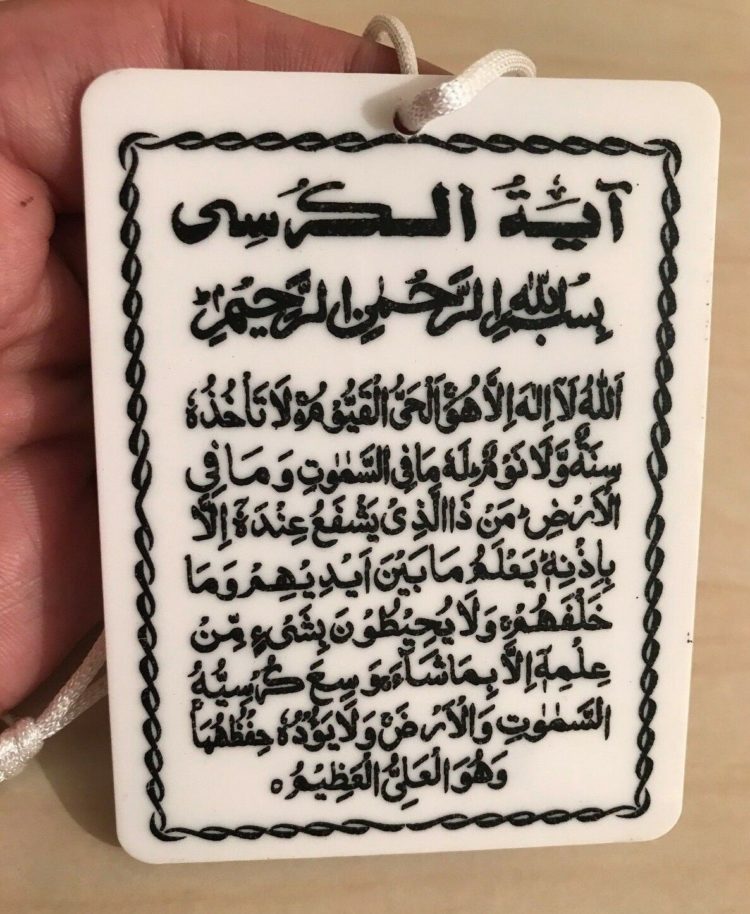 آيَةُ الْكُرْسِى
بِسْمِ اللّٰهِ الرَّحْمٰنِ الرَّحِيْمِ
اَللّٰهُ لَآ اِلٰهَ اِلَّا هُوَ ۚ اَلْحَىُّ الْقَيُّوْمُ ۚ لَا تَاْخُذُهٗ
سِنَةٌ وَّلَا نَوْمٌ ؕ لَهٗ مَا فِى السَّمٰوٰتِ وَمَا فِى
الْاَرْضِ ؕ مَنْ ذَا الَّذِىْ يَشْفَعُ عِنْدَهٗٓ اِلَّا
بِاِذْنِهٖ ؕ يَعْلَمُ مَا بَيْنَ اَيْدِيْهِمْ وَمَا
خَلْفَهُمْ ۚ وَلَا يُحِيْطُوْنَ بِشَىْءٍ مِّنْ
عِلْمِهٖٓ اِلَّا بِمَا شَآءَ ۚ وَسِعَ كُرْسِيُّهُ
السَّمٰوٰتِ وَالْاَرْضَ ۚ وَلَا يَؤُدُهٗ حِفْظُهُمَا ۚ
وَهُوَ الْعَلِىُّ الْعَظِيْمُ ہ